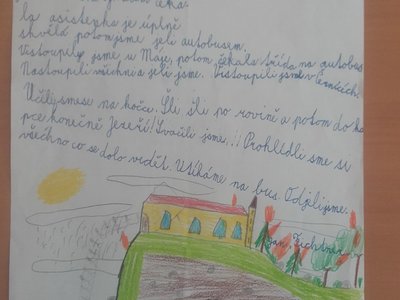 la asistenka je úplně
skvělá potom jsme jeli autobusem.
Vstoupily jsme u Maje potom čekala třída na autobus
Nastoupili všichni a jeli jsme. Vstoupili jsme v Černicích.
Učily smese na hočce. Šli šli po rovině a potom do ko
pce konečně Jezeří! Svačili jsme!! Prohlídli sme si
všechno co se dolo vidět. Utíkáme na bus. Odjeli jsme.
Jan